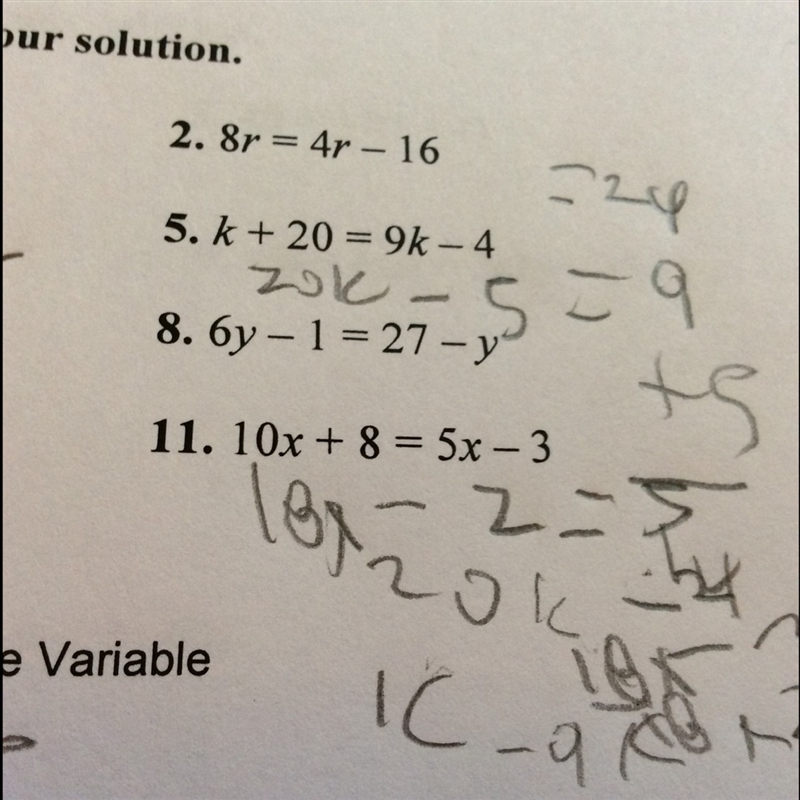 our solution.
2. 8r = 4r – 16
= 24
5. k + 20 = 9k – 4
20k – 5 = 9
8. 6y – 1 = 27 – y
+5
11. 10x + 8 = 5x – 3
18x – 2 = 5
20k
e Variable
k – 9